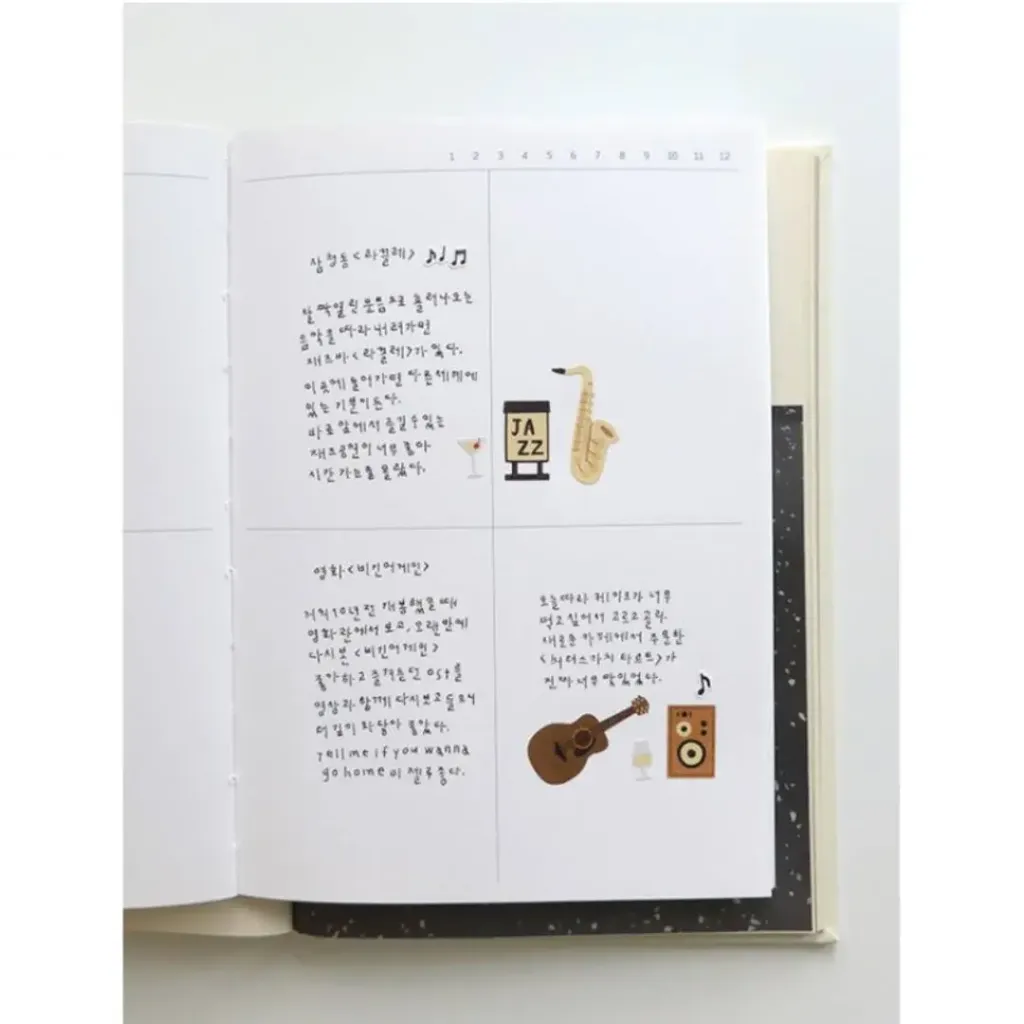 1 2 3 4 5 6 7 8 9 10 11 12
삼청동 <라끌레>
살짝 열린 문틈으로 흘러나오는
음악을 따라 내려가면
재즈바 <라끌레>가 있다.
이곳에 들어가면 다른세계에
있는 기분이 든다.
바로 앞에서 즐길 수 있는
재즈공연이 너무 좋아
시간 가는 줄 몰랐다.
JA
ZZ
영화 <비긴어게인>
저의 10년전 개봉했을때
영화관에서 보고, 오랜만에
다시 본 <비긴어게인>
좋아하고 즐겨듣던 ost를
영상과 함께 다시보고 들으니
더 깊이 와닿아 좋았다.
Tell me if you wanna
go home 이 젤루 좋다.
오늘따라 케이크가 너무
먹고싶어서 고르고 골라
새로운 카페에서 주문한
타르트>가
진짜 너무 맛있었다.